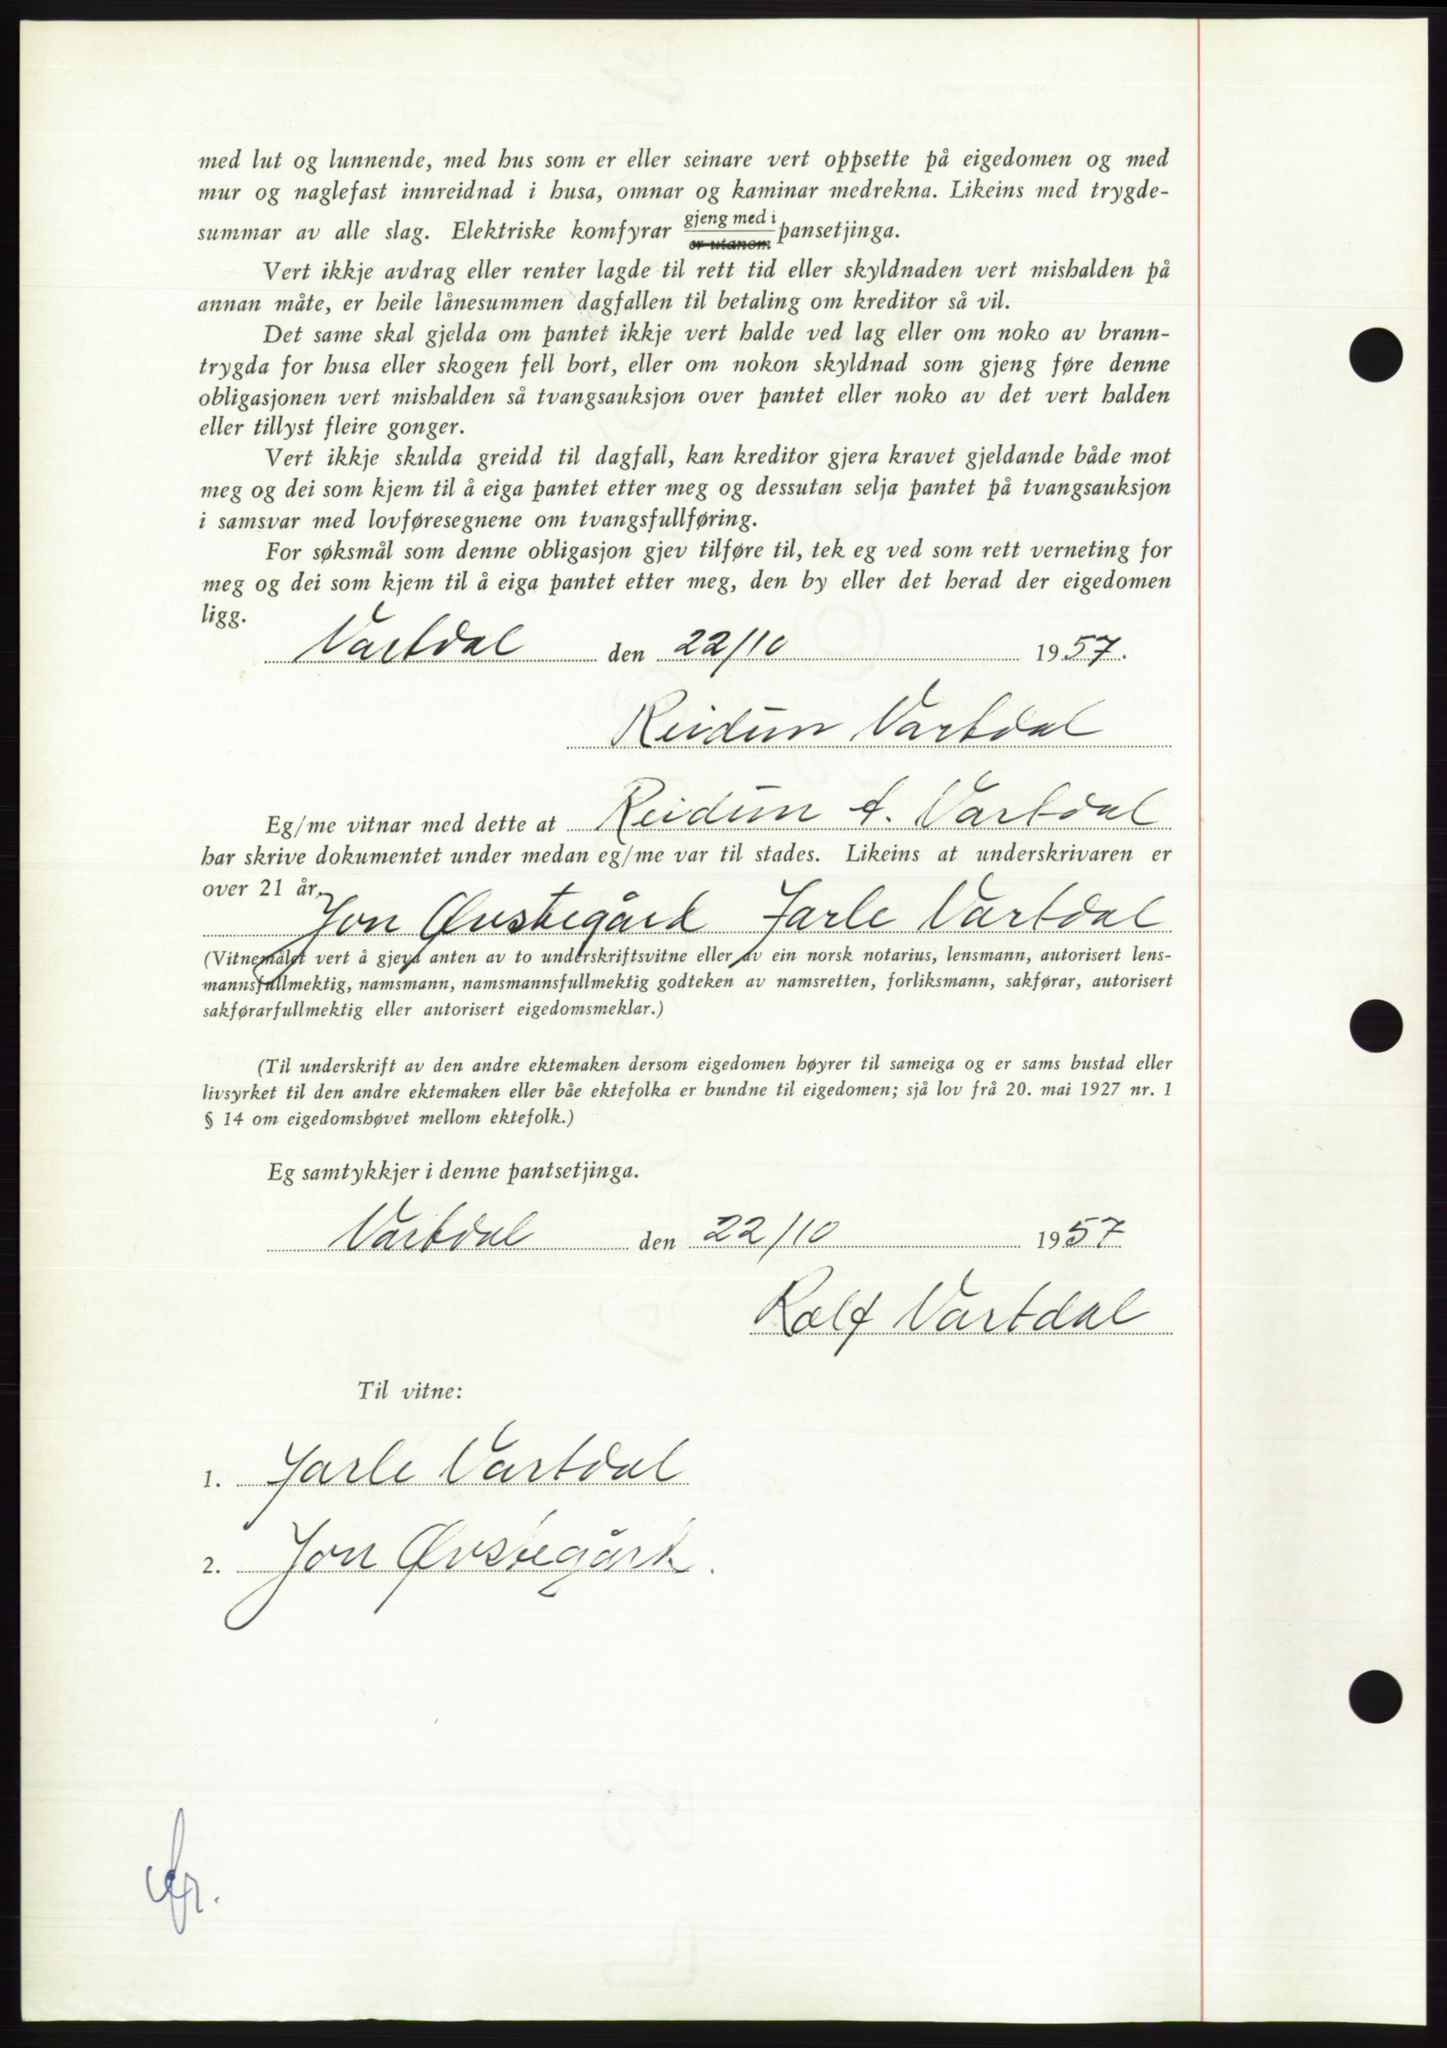 med lut og lunnende, med hus som er eller seinare vert oppsette på eigedomen og med
mur og naglefast innreidnad i husa, omnar og kaminar medrekna. Likeins med trygde-
summar av alle slag. Elektriske komfyrar gjeng med i er utanom pansetjinga.
Vert ikkje avdrag eller renter lagde til rett tid eller skyldnaden vert mishalden på
annan måte, er heile lånesummen dagfallen til betaling om kreditor så vil.
Det same skal gjelda om pantet ikkje vert halde ved lag eller om noko av brann-
trygda for husa eller skogen fell bort, eller om nokon skyldnad som gjeng føre denne
obligasjonen vert mishalden så tvangsauksjon over pantet eller noko av det vert halden
eller tillyst fleire gonger.
Vert ikkje skulda greidd til dagfall, kan kreditor gjera kravet gjeldande både mot
meg og dei som kjem til å eiga pantet etter meg og dessutan selja pantet på tvangsauksjon
i samsvar med lovføresegnene om tvangsfullføring.
For søksmål som denne obligasjon gjev tilføre til, tek eg ved som rett verneting for
meg og dei som kjem til å eiga pantet etter meg, den by eller det herad der eigedomen
ligg.
Vartdal den 22/10 1957.
Reidun Vartdal
Eg/me vitnar med dette at Reidun A. Vartdal
har skrive dokumentet under medan eg/me var til stades. Likeins at underskrivaren er
over 21 år.
Jon Øvstegård Jarle Vartdal
(Vitnemålet vert å gjeva anten av to underskriftsvitne eller av ein norsk notarius, lensmann, autorisert lens-
mannsfullmektig, namsmann, namsmannsfullmektig godteken av namsretten, forliksmann, sakførar, autorisert
sakførarfullmektig eller autorisert eigedomsmeklar.)
(Til underskrift av den andre ektemaken dersom eigedomen høyrer til sameiga og er sams bustad eller
livsyrket til den andre ektemaken eller båe ektefolka er bundne til eigedomen; sjå lov frå 20. mai 1927 nr. 1
§ 14 om eigedomshøvet mellom ektefolk.)
Eg samtykkjer i denne pantsetjinga.
Vartdal den 22/10 1957
Rolf Vartdal
Til vitne:
1. Jarle Vartdal
2. Jon Øvstegård.